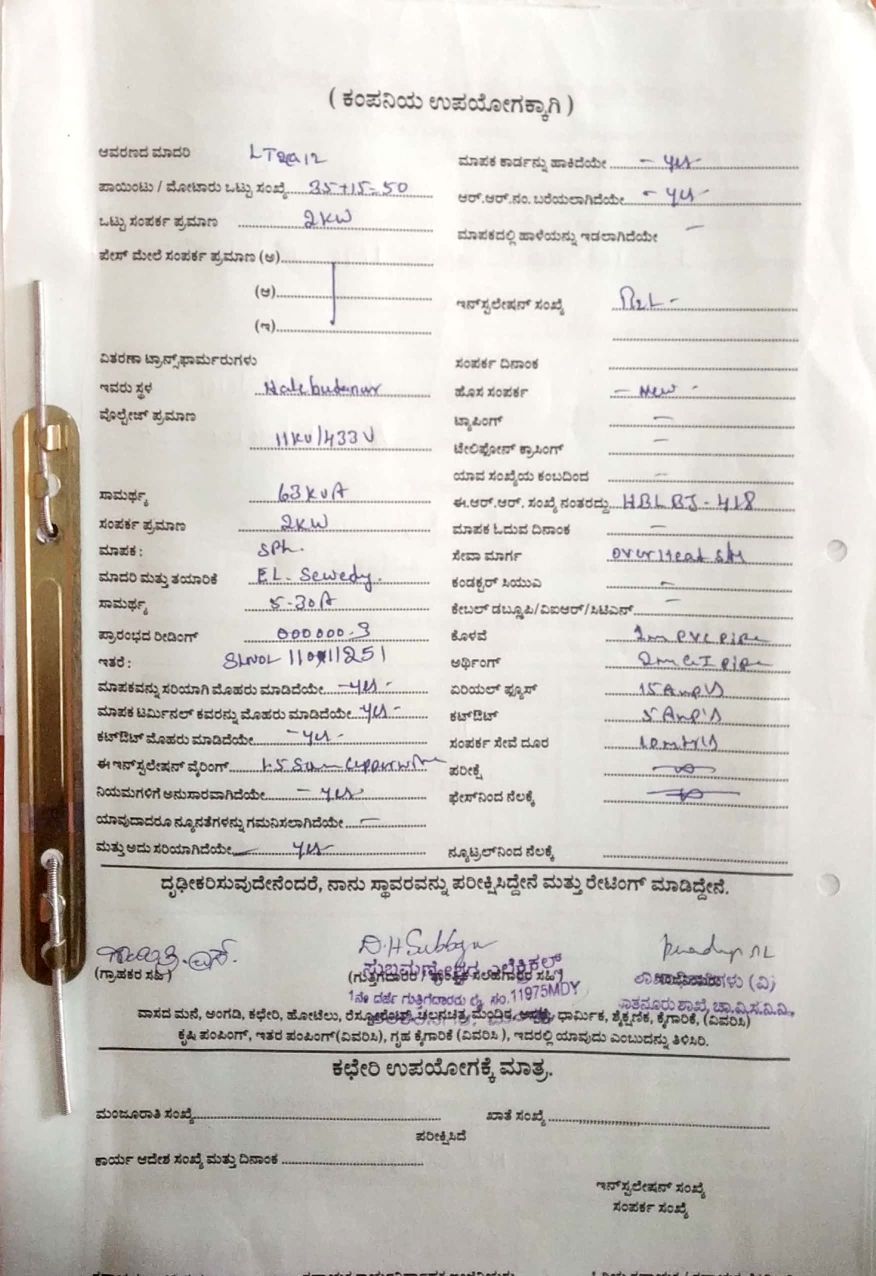 ( ಕಂಪನಿಯ ಉಪಯೋಗಕ್ಕಾಗಿ )
ಆವರಣದ ಮಾದರಿ
ಪಾಯಿಂಟು / ಮೋಟಾರು ಒಟ್ಟು ಸಂಖ್ಯೆ 35+15-50
ಒಟ್ಟು ಸಂಪರ್ಕ ಪ್ರಮಾಣ 2KW
ಫೇಸ್ ಮೇಲೆ ಸಂಪರ್ಕ ಪ್ರಮಾಣ (ಅ)
(ಆ)
(ಇ)
ವಿತರಣಾ ಟ್ರಾನ್ಸ್‌ಫಾರ್ಮರುಗಳು
ಇವರು ಸ್ಥಳ Halebudanur
ವೊಲ್ಟೇಜ್ ಪ್ರಮಾಣ
11KV/433V
ಸಾಮರ್ಥ್ಯ 63KVA
ಸಂಪರ್ಕ ಪ್ರಮಾಣ 2KW
ಮಾಪಕ : SPh.
ಮಾದರಿ ಮತ್ತು ತಯಾರಿಕೆ EL. Sewedy.
ಸಾಮರ್ಥ್ಯ 5-30A
ಪ್ರಾರಂಭದ ರೀಡಿಂಗ್ 000000.3
ಇತರೆ :
ಮಾಪಕವನ್ನು ಸರಿಯಾಗಿ ಮೊಹರು ಮಾಡಿದೆಯೇ - yes -
ಮಾಪಕ ಟರ್ಮಿನಲ್ ಕವರನ್ನು ಮೊಹರು ಮಾಡಿದೆಯೇ yes -
ಕಟ್‌ಔಟ್ ಮೊಹರು ಮಾಡಿದೆಯೇ - yes -
ಈ ಇನ್‌ಸ್ಟಲೇಷನ್ ವೈರಿಂಗ್
ನಿಯಮಗಳಿಗೆ ಅನುಸಾರವಾಗಿದೆಯೇ - yes -
ಯಾವುದಾದರೂ ನ್ಯೂನತೆಗಳನ್ನು ಗಮನಿಸಲಾಗಿದೆಯೇ -
ಮತ್ತು ಅದು ಸರಿಯಾಗಿದೆಯೇ yes -
ಮಾಪಕ ಕಾರ್ಡನ್ನು ಹಾಕಿದೆಯೇ - yes -
ಆರ್.ಆರ್.ನಂ. ಬರೆಯಲಾಗಿದೆಯೇ - yes -
ಮಾಪಕದಲ್ಲಿ ಹಾಳೆಯನ್ನು ಇಡಲಾಗಿದೆಯೇ -
ಇನ್‌ಸ್ಟಲೇಷನ್ ಸಂಖ್ಯೆ
ಸಂಪರ್ಕ ದಿನಾಂಕ
ಹೊಸ ಸಂಪರ್ಕ - New -
ಟ್ಯಾಪಿಂಗ್ -
ಟೆಲಿಫೋನ್ ಕ್ರಾಸಿಂಗ್ -
ಯಾವ ಸಂಖ್ಯೆಯ ಕಂಬದಿಂದ -
ಈ.ಆರ್.ಆರ್. ಸಂಖ್ಯೆ ನಂತರದ್ದು HBLBJ-418
ಮಾಪಕ ಓದುವ ದಿನಾಂಕ -
ಸೇವಾ ಮಾರ್ಗ
ಕಂಡಕ್ಟರ್ ಸಿಯುಎ -
ಕೇಬಲ್ ಡಬ್ಲ್ಯೂಪಿ/ವಿಐಆರ್/ಸಿಟಿಎನ್ -
ಕೊಳವೆ 2m PVC pipe
ಅರ್ಥಿಂಗ್ 2m GI pipe
ಏರಿಯಲ್ ಫ್ಯೂಸ್ 15 Amp's
ಕಟ್‌ಔಟ್ 5 Amp's
ಸಂಪರ್ಕ ಸೇವೆ ದೂರ 10 mtrs
ಪರೀಕ್ಷೆ
ಫೇಸ್‌ನಿಂದ ನೆಲಕ್ಕೆ
ನ್ಯೂಟ್ರಲ್‌ನಿಂದ ನೆಲಕ್ಕೆ
ದೃಢೀಕರಿಸುವುದೇನೆಂದರೆ, ನಾನು ಸ್ಥಾವರವನ್ನು ಪರೀಕ್ಷಿಸಿದ್ದೇನೆ ಮತ್ತು ರೇಟಿಂಗ್ ಮಾಡಿದ್ದೇನೆ.
D.H Subbaya
(ಗ್ರಾಹಕರ ಸಹಿ)
1ನೇ ದರ್ಜೆ ಗುತ್ತಿಗೆದಾರರು ಲೈ. ಸಂ.11975MDY
ವಾಸದ ಮನೆ, ಅಂಗಡಿ, ಕಛೇರಿ, ಹೋಟೆಲು, ರೆಸ್ಟೋರೆಂಟ್, ಚಲನಚಿತ್ರ ಮಂದಿರ, ಆಸ್ಪತ್ರೆ, ಧಾರ್ಮಿಕ, ಶೈಕ್ಷಣಿಕ, ಕೈಗಾರಿಕೆ, (ವಿವರಿಸಿ)
ಕೃಷಿ ಪಂಪಿಂಗ್, ಇತರ ಪಂಪಿಂಗ್(ವಿವರಿಸಿ), ಗೃಹ ಕೈಗಾರಿಕೆ (ವಿವರಿಸಿ ), ಇದರಲ್ಲಿ ಯಾವುದು ಎಂಬುದನ್ನು ತಿಳಿಸಿರಿ.
ಕಛೇರಿ ಉಪಯೋಗಕ್ಕೆ ಮಾತ್ರ.
ಮಂಜೂರಾತಿ ಸಂಖ್ಯೆ ಖಾತೆ ಸಂಖ್ಯೆ
ಪರೀಕ್ಷಿಸಿದೆ
ಕಾರ್ಯ ಆದೇಶ ಸಂಖ್ಯೆ ಮತ್ತು ದಿನಾಂಕ
ಇನ್‌ಸ್ಟಲೇಷನ್ ಸಂಖ್ಯೆ
ಸಂಪರ್ಕ ಸಂಖ್ಯೆ